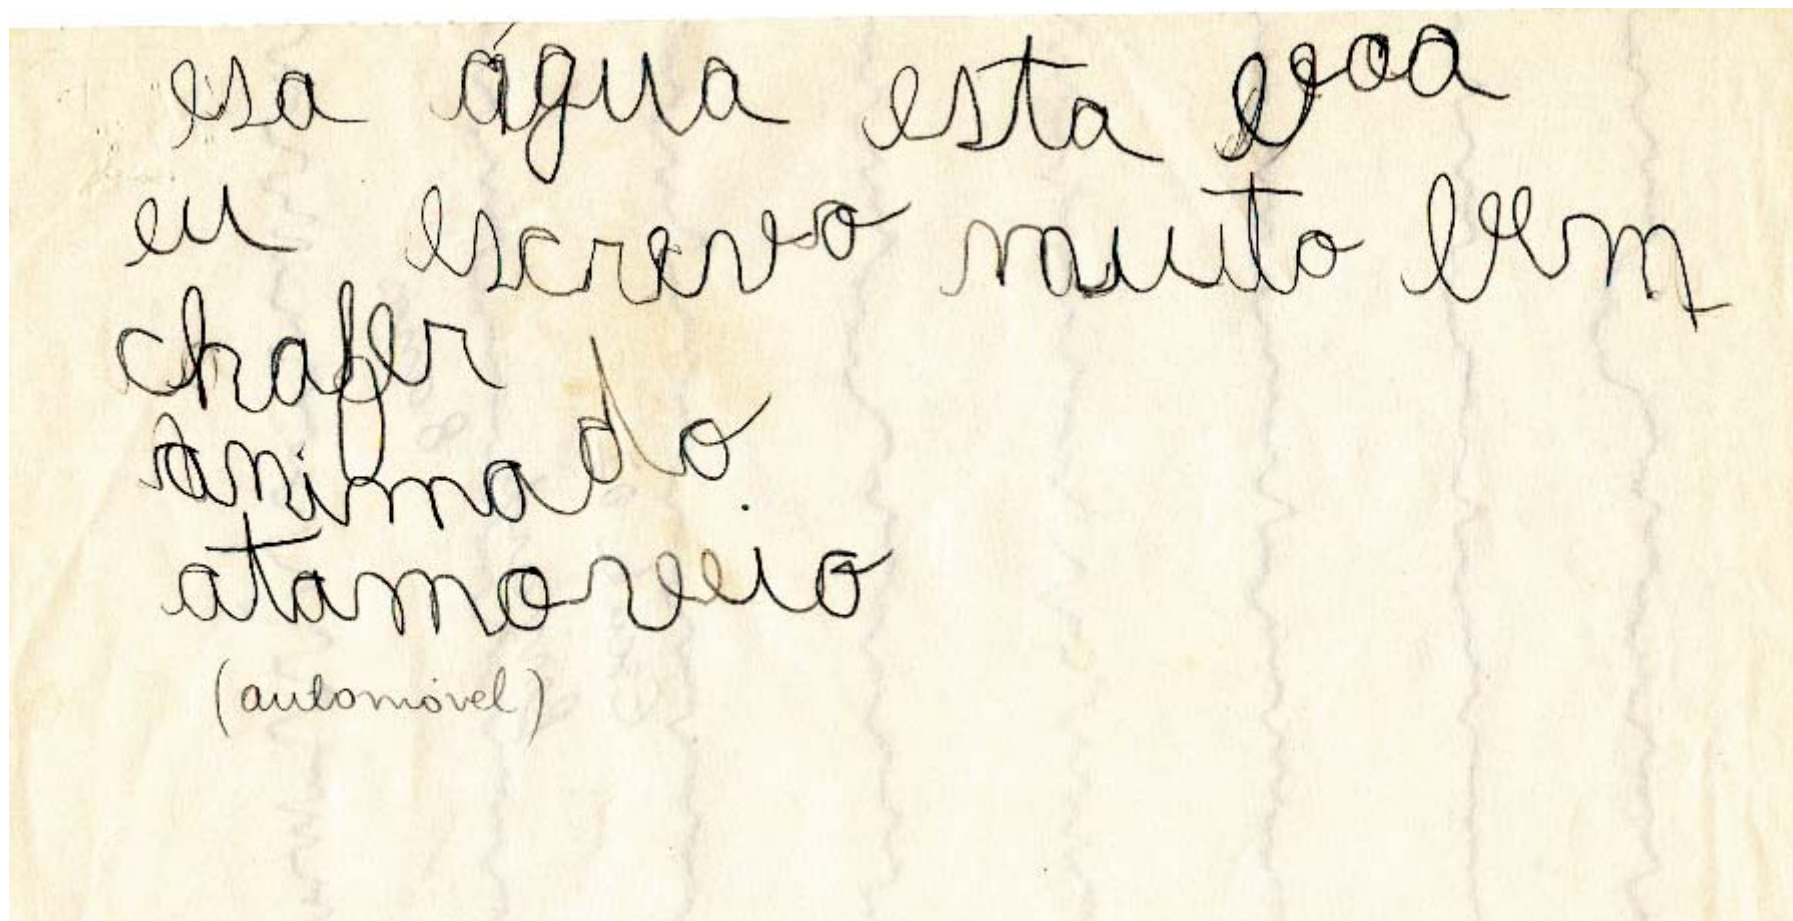 esa água esta boa
eu escrevo muito bem
chafer
animado
atamoveio
(automóvel)